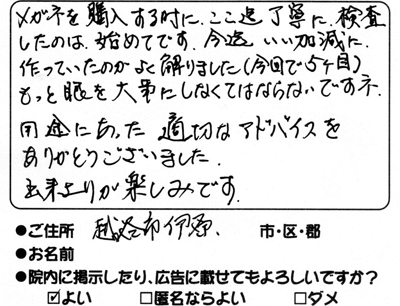 メガネを購入する時に、ここ迄丁寧に、検査
したのは、始めてです。今迄いい加減に、
作っていたのがよく解りました(今回で5ヶ目)
もっと眼を大事にしなくてはならないですネ.
用途にあった適切なアドバイスを
ありがとうございました.
出来上りが楽しみです.
●ご住所 越谷市伊原. 市・区・郡
●お名前
●院内に掲示したり、広告に載せてもよろしいですか?
☑よい □匿名ならよい □ダメ